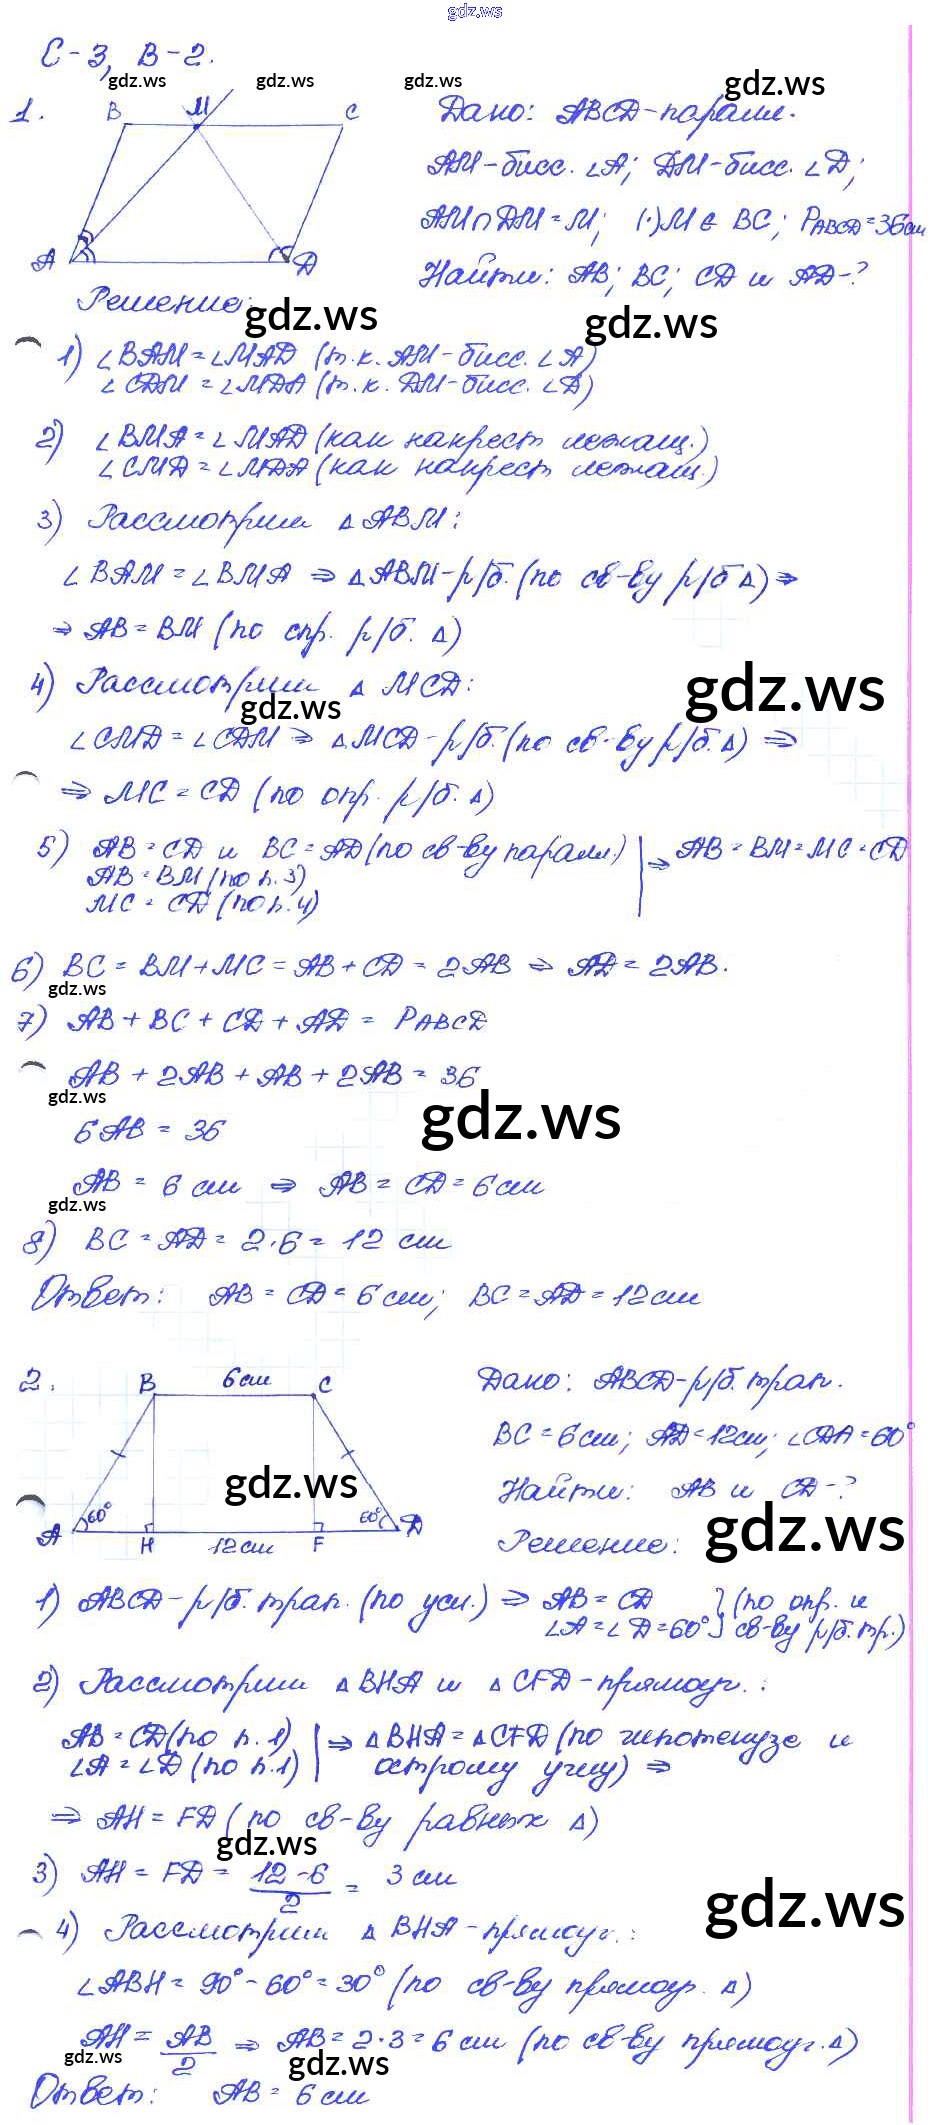 gdz.ws
С-3, В-2.
gdz.ws gdz.ws gdz.ws gdz.ws
1. B M C A D
Дано: ABCD-паралл.
AM-бисс. ∠A; DM-бисс. ∠D;
AM∩DM=M; (·)M∈BC; PABCD=36см
Найти: AB; BC; CD и AD-?
Решение:
gdz.ws gdz.ws
1) ∠BAM=∠MAD (т.к. AM-бисс. ∠A)
∠CDM=∠MDA (т.к. DM-бисс. ∠D)
2) ∠BMA=∠MAD (как накрест лежащ.)
∠CMD=∠MDA (как накрест лежащ.)
3) Рассмотрим △ABM:
∠BAM=∠BMA ⇒ △ABM-р/б. (по св-ву р/б △) ⇒
⇒ AB=BM (по опр. р/б. △)
4) Рассмотрим △MCD:
gdz.ws gdz.ws
∠CMD=∠CDM ⇒ △MCD-р/б. (по св-ву р/б. △) ⇒
⇒ MC=CD (по опр. р/б. △)
5) AB=CD и BC=AD (по св-ву паралл.) | ⇒ AB=BM=MC=CD
AB=BM (по п.3)
MC=CD (по п.4)
6) BC=BM+MC=AB+CD=2AB ⇒ AD=2AB.
gdz.ws
7) AB+BC+CD+AD=PABCD
AB+2AB+AB+2AB=36
gdz.ws gdz.ws
6AB=36
AB=6 см ⇒ AB=CD=6см
gdz.ws
8) BC=AD=2·6=12 см
Ответ: AB=CD=6см; BC=AD=12см
2. B 6см C A 60° H 12см F 60° D
Дано: ABCD-р/б. трап.
BC=6см; AD=12см; ∠CDA=60°
Найти: AB и CD-?
gdz.ws gdz.ws
Решение:
1) ABCD-р/б. трап. (по усл.) ⇒ AB=CD } (по опр. и
∠A=∠D=60° } св-ву р/б. тр.)
2) Рассмотрим △BHA и △CFD-прямоуг.:
AB=CD (по п.1) | ⇒ △BHA=△CFD (по гипотенузе и
∠A=∠D (по п.1) | острому углу) ⇒
⇒ AH=FD (по св-ву равных △)
gdz.ws
3) AH=FD=12-6/2=3 см
gdz.ws
4) Рассмотрим △BHA-прямоуг.:
∠ABH=90°-60°=30° (по св-ву прямоуг. △)
AH=AB/2 ⇒ AB=2·3=6 см (по св-ву прямоуг. △)
gdz.ws gdz.ws
Ответ: AB=6 см